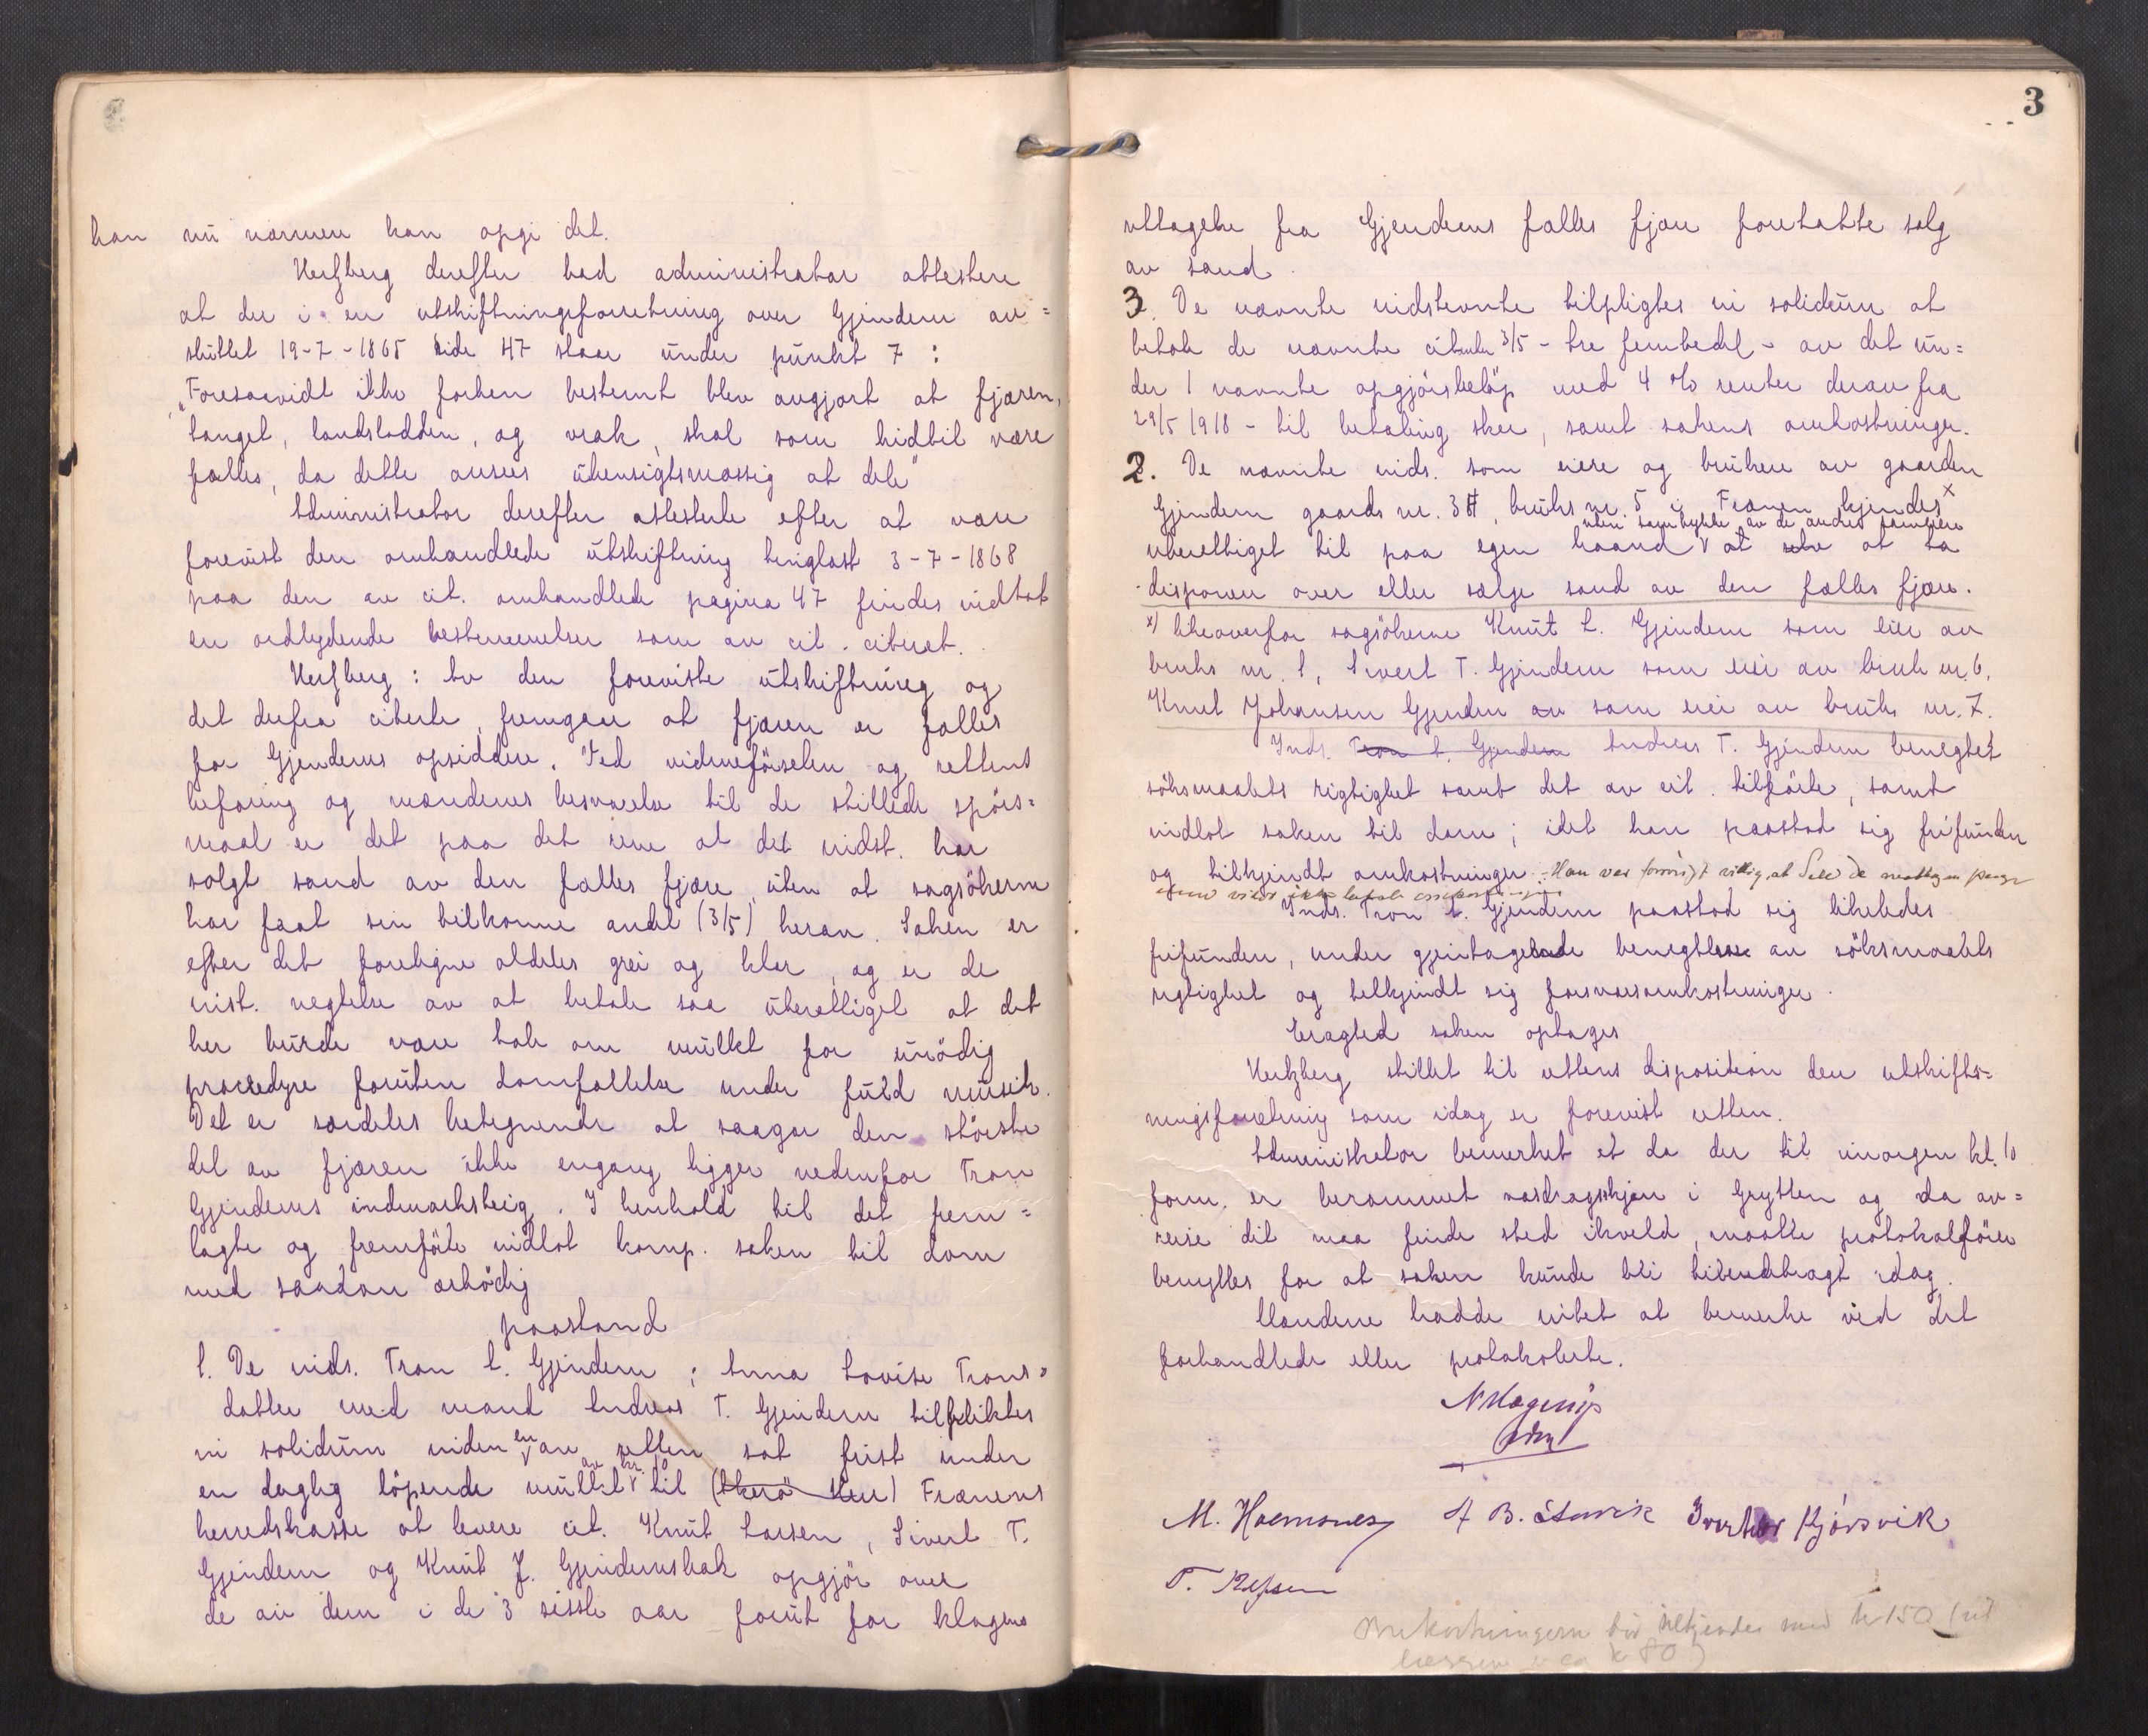 han nu nærmere kan opgi det.
Hertzberg derefter bad administrator attestere
at der i en utskiftningsforretning over Gjendem av=
sluttet 19-7-1865 side 47 staar under punkt 7:
"Foresaavidt ikke forhen bestemt blev avgjort at fjæren,
tanget, landslodden, og vrak, skal som hidtil være
fælles, da dette ansees uhensigtsmæssig at dele"
Administrator derefter attesterte efter at være
forevist den omhandlede utskiftning tinglæst 3-7-1868
paa den av cit. omhandlede pagina 47 findes vedtat
en ordlydende bestemmelse som av cit. citeret.
Hertzberg: Av den foreviste utskiftning og
det derfra citerte, fremgaar at fjæren er fælles
for Gjendems opsiddere. Ved vidneførselen og rettens
befaring og mændenes besvarelse til de stillede spørs=
maal er det paa det rene at det indst. har
solgt sand av den fælles fjære uten at sagsøkerne
har faat sin tilkomne andel (3/5) herav. Saken er
efter det foreligne aldeles grei og klar, og er de
inst. negtelse av at betale saa uberettiget at det
her burde være tale om mulkt for unødig
procedyre foruten domfældelse under fuld musik.
Det er særdeles betegnende at saagar den største
del av fjæren ikke engang ligger nedenfor Tron
Gjendems indmarksteig. I henhold til det frem=
lagte og fremførte indlot komp. saken til dom
med saadan ærbødig
paastand
1. De inds. Tron L. Gjendem; Anna Lovise Trons=
datter med mand Andreas T. Gjendem tilpliktes
in solidum inden en av retten sat frist under
en daglig løpende mulkt av kr. 10 til Frænens
herredskasse at levere cit. Knut Larsen, Sivert T.
Gjendem og Knut J. Gjendemsbak opgjør over
de av dem i de 3 sisste aar forut for klagens
3
uttagelse fra Gjendems fælles fjære foretatte salg
av sand.
3. De nævnte indstevnte tilpligtes in solidum at
betale de nævnte citanter 3/5 - tre femtedel - av det un=
der 1 nævnte opgjørsbeløp med 4 % renter derav fra
29/5 1918 - til betaling sker, samt sakens omkostninger.
2. De nævnte inds. som eiere og brukere av gaarden
Gjendem gaards nr. 34, bruks nr. 5 i Frænen kjendes x
uten samtykke av de andre sameiere
uberettiget til paa egen haand at at ta
disponere over eller sælge sand av den fælles fjære.
x) likeoverfor sagsøkerne Knut L. Gjendem som eier av
bruks nr. 1, Sivert T. Gjendem som eier av bruk nr. 6,
Knut Johansen Gjendem som eier av bruks nr. 7.
Inds. Tron L. Gjendem Andreas T. Gjendem benegtet
søksmaalets rigtighet samt det av cit. tilførte, samt
indlot saken til dom; idet han paastod sig frifunden
og tilkjendt omkostninger. Han var forøvrigt villig at
Inds. Tron L. Gjendem paastod sig likeledes
frifunden, under gjentagende benegtelse av søksmaalets
rigtighet og tilkjendt sig forsvarsomkostninger.
Eragted saken optages
Hertzberg stillet til rettens disposition den utskift=
ningsforretning som idag er forevist retten.
Administrator bemerket at da der til imorgen kl. 10
form. er berammet vasdragsskjøn i Grytten og da av=
reise dit maa finde sted ikveld, maatte protokolfører
benyttes for at saken kunde bli tilendebragt idag.
Mændene hadde intet at bemerke ved det
forhandlede eller protokolerte.
N Hagerup
adm
M. Haemsnes A B. Istavik Ivertor Kjørsvik
Omkostningerne bør tilkjendes med kr 150
ca kr 80)